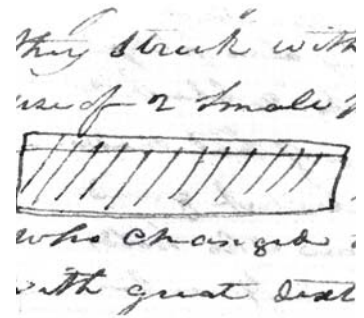 they struck with
use of 2 small
who changed
with great dext